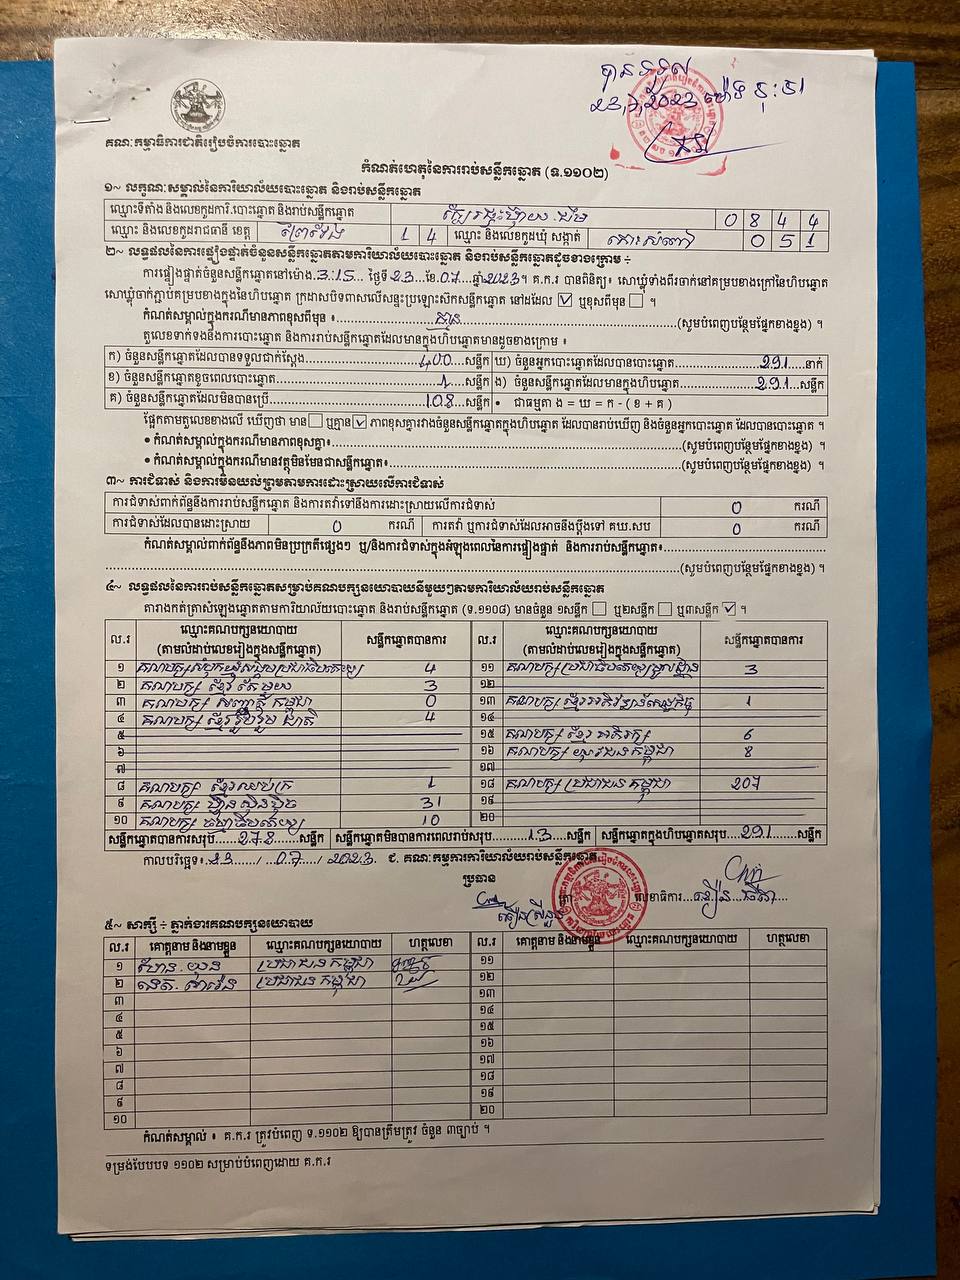 បានទទួល
គណៈកម្មាធិការជាតិរៀបចំការបោះឆ្នោត
កំណត់ហេតុនៃការរាប់សន្លឹកឆ្នោត (ទ.១១០២)
១~ លក្ខណៈសម្គាល់នៃការិយាល័យបោះឆ្នោត និងរាប់សន្លឹកឆ្នោត
ឈ្មោះទីតាំង និងលេខកូដការិ.បោះឆ្នោត និងរាប់សន្លឹកឆ្នោត 0 8 4 4
ឈ្មោះ និងលេខកូដរាជធានី ខេត្ត ព្រៃវែង 1 4 ឈ្មោះ និងលេខកូដឃុំ សង្កាត់ កោះសំពៅ 0 5 1
២~ លទ្ធផលនៃការផ្ទៀងផ្ទាត់ចំនួនសន្លឹកឆ្នោតតាមការិយាល័យបោះឆ្នោត និងរាប់សន្លឹកឆ្នោតដូចខាងក្រោម ÷
ការផ្ទៀងផ្ទាត់ចំនួនសន្លឹកឆ្នោតនៅម៉ោង 3:15 ថ្ងៃទី 23 ខែ 07 ឆ្នាំ 2023 ។ គ.ក.រ បានពិនិត្យ៖ សោឃ្លុំទាំងពីរចាក់នៅគម្របខាងក្រៅនៃហិបឆ្នោត
សោឃ្លុំចាក់ភ្ជាប់គម្របខាងក្នុងនៃហិបឆ្នោត ក្រដាសបិទពាសលើសន្ទះប្រឡោះសិកសន្លឹកឆ្នោត នៅដដែល ☑ ឬខុសពីមុន ☐ ។
កំណត់សម្គាល់ក្នុងករណីមានភាពខុសពីមុន ៖ គ្មាន (សូមបំពេញបន្ថែមផ្នែកខាងខ្នង) ។
តួលេខទាក់ទងនឹងការបោះឆ្នោត និងការរាប់សន្លឹកឆ្នោតដែលមានក្នុងហិបឆ្នោតមានដូចខាងក្រោម ៖
ក) ចំនួនសន្លឹកឆ្នោតដែលបានទទួលជាក់ស្តែង 400 សន្លឹក ឃ) ចំនួនអ្នកបោះឆ្នោតដែលបានបោះឆ្នោត 291 នាក់
ខ) ចំនួនសន្លឹកឆ្នោតខូចពេលបោះឆ្នោត 1 សន្លឹក ង) ចំនួនសន្លឹកឆ្នោតដែលមានក្នុងហិបឆ្នោត 291 សន្លឹក
គ) ចំនួនសន្លឹកឆ្នោតដែលមិនបានប្រើ 108 សន្លឹក • ជាធម្មតា ង = ឃ = ក - ( ខ + គ )
ផ្អែកតាមតួលេខខាងលើ ឃើញថា មាន ☐ ឬគ្មាន ☑ ភាពខុសគ្នារវាងចំនួនសន្លឹកឆ្នោតក្នុងហិបឆ្នោត ដែលបានរាប់ឃើញ និងចំនួនអ្នកបោះឆ្នោត ដែលបានបោះឆ្នោត ។
• កំណត់សម្គាល់ក្នុងករណីមានភាពខុសគ្នា៖ (សូមបំពេញបន្ថែមផ្នែកខាងខ្នង) ។
• កំណត់សម្គាល់ក្នុងករណីមានវត្ថុមិនមែនជាសន្លឹកឆ្នោត៖ (សូមបំពេញបន្ថែមផ្នែកខាងខ្នង) ។
៣~ ការជំទាស់ និងការមិនយល់ព្រមតាមការដោះស្រាយលើការជំទាស់
ការជំទាស់ពាក់ព័ន្ធនឹងការរាប់សន្លឹកឆ្នោត និងការតវ៉ាទៅនឹងការដោះស្រាយលើការជំទាស់ 0 ករណី
ការជំទាស់ដែលបានដោះស្រាយ 0 ករណី ការតវ៉ា ឬការជំទាស់ដែលអាចនឹងប្តឹងទៅ គឃ.សប 0 ករណី
កំណត់សម្គាល់ពាក់ព័ន្ធនឹងភាពមិនប្រក្រតីផ្សេងៗ ឬ/និងការជំទាស់ក្នុងអំឡុងពេលនៃការផ្ទៀងផ្ទាត់ និងការរាប់សន្លឹកឆ្នោត៖
(សូមបំពេញបន្ថែមផ្នែកខាងខ្នង) ។
៤~ លទ្ធផលនៃការរាប់សន្លឹកឆ្នោតសម្រាប់គណបក្សនយោបាយនីមួយៗតាមការិយាល័យរាប់សន្លឹកឆ្នោត
តារាងកត់ត្រាសំឡេងឆ្នោតតាមការិយាល័យបោះឆ្នោត និងរាប់សន្លឹកឆ្នោត (ទ.១១០៨) មានចំនួន ១សន្លឹក ☐ ឬ២សន្លឹក ☐ ឬ៣សន្លឹក ☑ ។
ល.រ ឈ្មោះគណបក្សនយោបាយ (តាមលំដាប់លេខរៀងក្នុងសន្លឹកឆ្នោត) សន្លឹកឆ្នោតបានការ ល.រ ឈ្មោះគណបក្សនយោបាយ (តាមលំដាប់លេខរៀងក្នុងសន្លឹកឆ្នោត) សន្លឹកឆ្នោតបានការ
១ គណបក្សសំបុកឃ្មុំសង្គមប្រជាធិបតេយ្យ 4 ១១ គណបក្សប្រជាធិបតេយ្យមូលដ្ឋាន 3
២ គណបក្ស ខ្មែរតែមួយ 3 ១២
៣ គណបក្ស សញ្ជាតិកម្ពុជា 0 ១៣ គណបក្ស ខ្មែរអភិវឌ្ឍន៍សេដ្ឋកិច្ច 1
៤ គណបក្ស ខ្មែររួបរួមជាតិ 4 ១៤
៥ ១៥ គណបក្ស ខ្មែរអភិរក្ស 6
៦ ១៦ គណបក្ស យុវជនកម្ពុជា 8
៧ ១៧
៨ គណបក្ស ខ្មែរឈប់ក្រ 1 ១៨ គណបក្ស ប្រជាជនកម្ពុជា 207
៩ គណបក្ស ហ្វ៊ុនស៊ិនប៉ិច 31 ១៩
១០ គណបក្ស ធម្មាធិបតេយ្យ 10 ២០
សន្លឹកឆ្នោតបានការសរុប 278 សន្លឹក សន្លឹកឆ្នោតមិនបានការពេលរាប់សរុប 13 សន្លឹក សន្លឹកឆ្នោតក្នុងហិបឆ្នោតសរុប 291 សន្លឹក
កាលបរិច្ឆេទ៖ 23 / 07 / 2023 ជ. គណៈកម្មការការិយាល័យរាប់សន្លឹកឆ្នោត
ប្រធាន
លេខាធិការ
៥~ សាក្សី ÷ ភ្នាក់ងារគណបក្សនយោបាយ
ល.រ គោត្តនាម និងនាមខ្លួន ឈ្មោះគណបក្សនយោបាយ ហត្ថលេខា ល.រ គោត្តនាម និងនាមខ្លួន ឈ្មោះគណបក្សនយោបាយ ហត្ថលេខា
១ ប្រជាជនកម្ពុជា ១១
២ ប្រជាជនកម្ពុជា ១២
៣ ១៣
៤ ១៤
៥ ១៥
៦ ១៦
៧ ១៧
៨ ១៨
៩ ១៩
១០ ២០
កំណត់សម្គាល់ ៖ គ.ក.រ ត្រូវបំពេញ ទ.១១០២ ឱ្យបានត្រឹមត្រូវ ចំនួន ៣ច្បាប់ ។
ទម្រង់បែបបទ ១១០២ សម្រាប់បំពេញដោយ គ.ក.រ